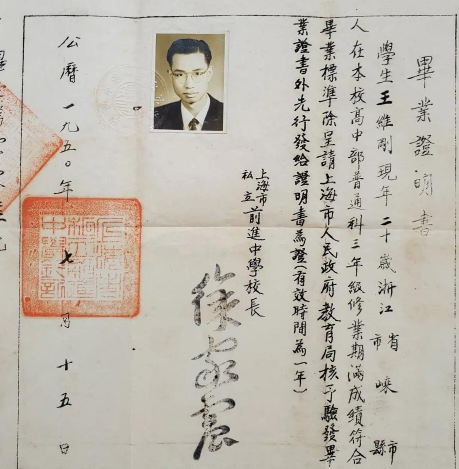 畢業證明書
學生王維剛現年二十歲浙江省市嵊縣市
人在本校高中部普通科三年級修業期滿成績符合
畢業標準除呈請上海市人民政府教育局核予驗發畢
業證書外先行發給證明書為證(有效時間為一年)
上海市私立前進中學校長
公曆一九五〇年七月十五日